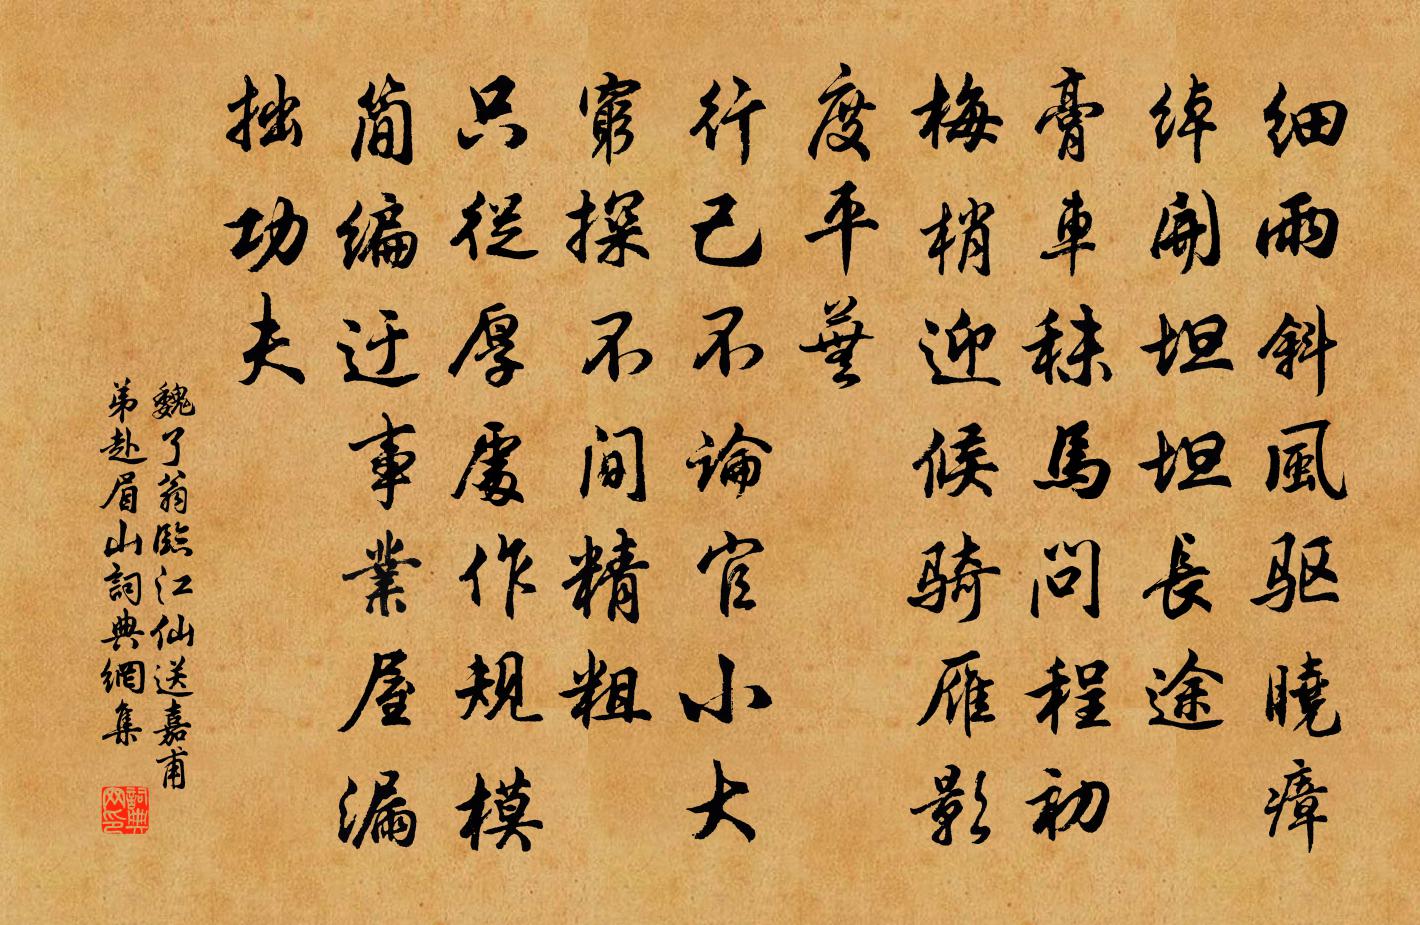 细雨斜風驱曉瘴
綽開坦坦長途
膏車秣馬問程初
梅梢迎候騎
雁影度平蕪
行己不論官小大
窮探不間精粗
只從厚處作規模
简编迂事業
屋漏拙功夫
魏了翁臨江仙送嘉甫
弟赴眉山詞典網集
詞典网印